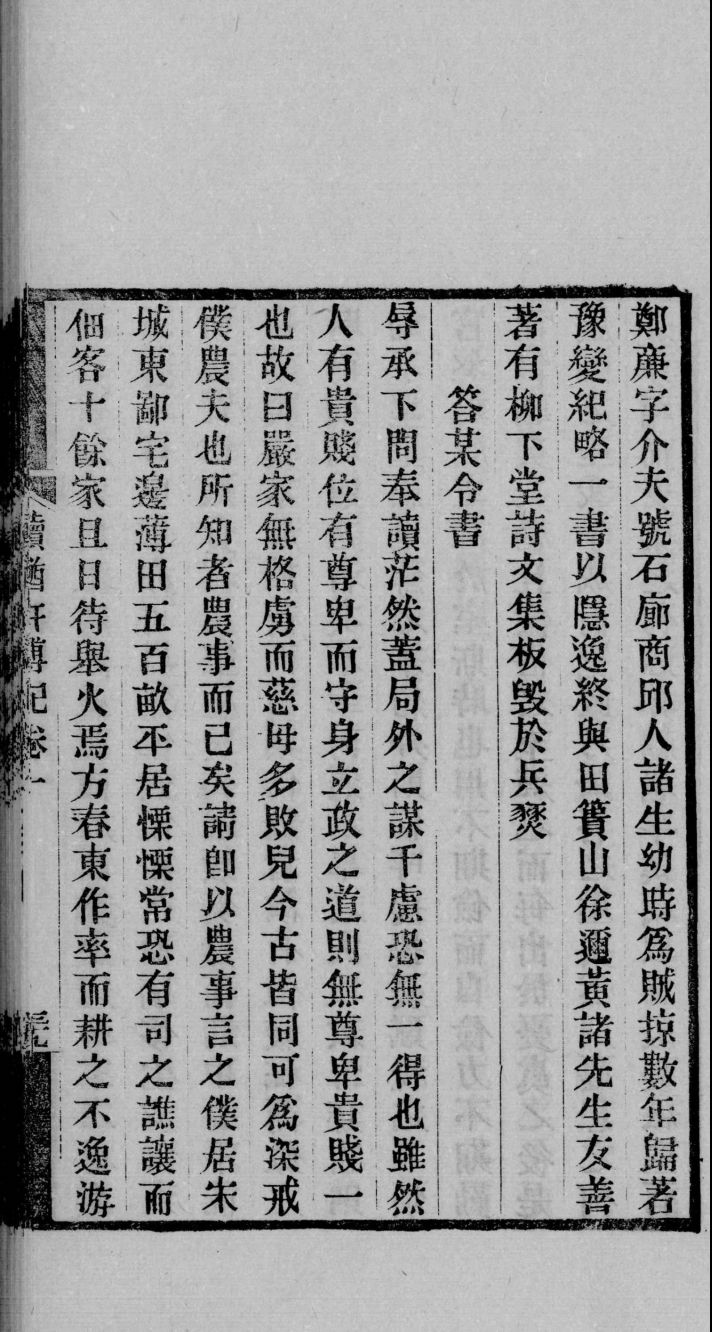 鄭廉字介夫號石廊商邱人諸生幼時爲賊掠數年歸著
豫變紀略一書以隱逸終與田簣山徐邇黃諸先生友善
著有柳下堂詩文集板毀於兵燹
答某令書
辱承下問奉讀茫然蓋局外之謀千慮恐無一得也雖然
人有貴賤位有尊卑而守身立政之道則無尊卑貴賤一
也故曰嚴家無格虜而慈母多敗兒今古皆同可爲深戒
僕農夫也所知者農事而已矣請卽以農事言之僕居宋
城東鄙宅邊薄田五百畝平居慄慄常恐有司之譙讓而
佃客十餘家且日待舉火焉方春東作率而耕之不逸游
續 軒博記卷一